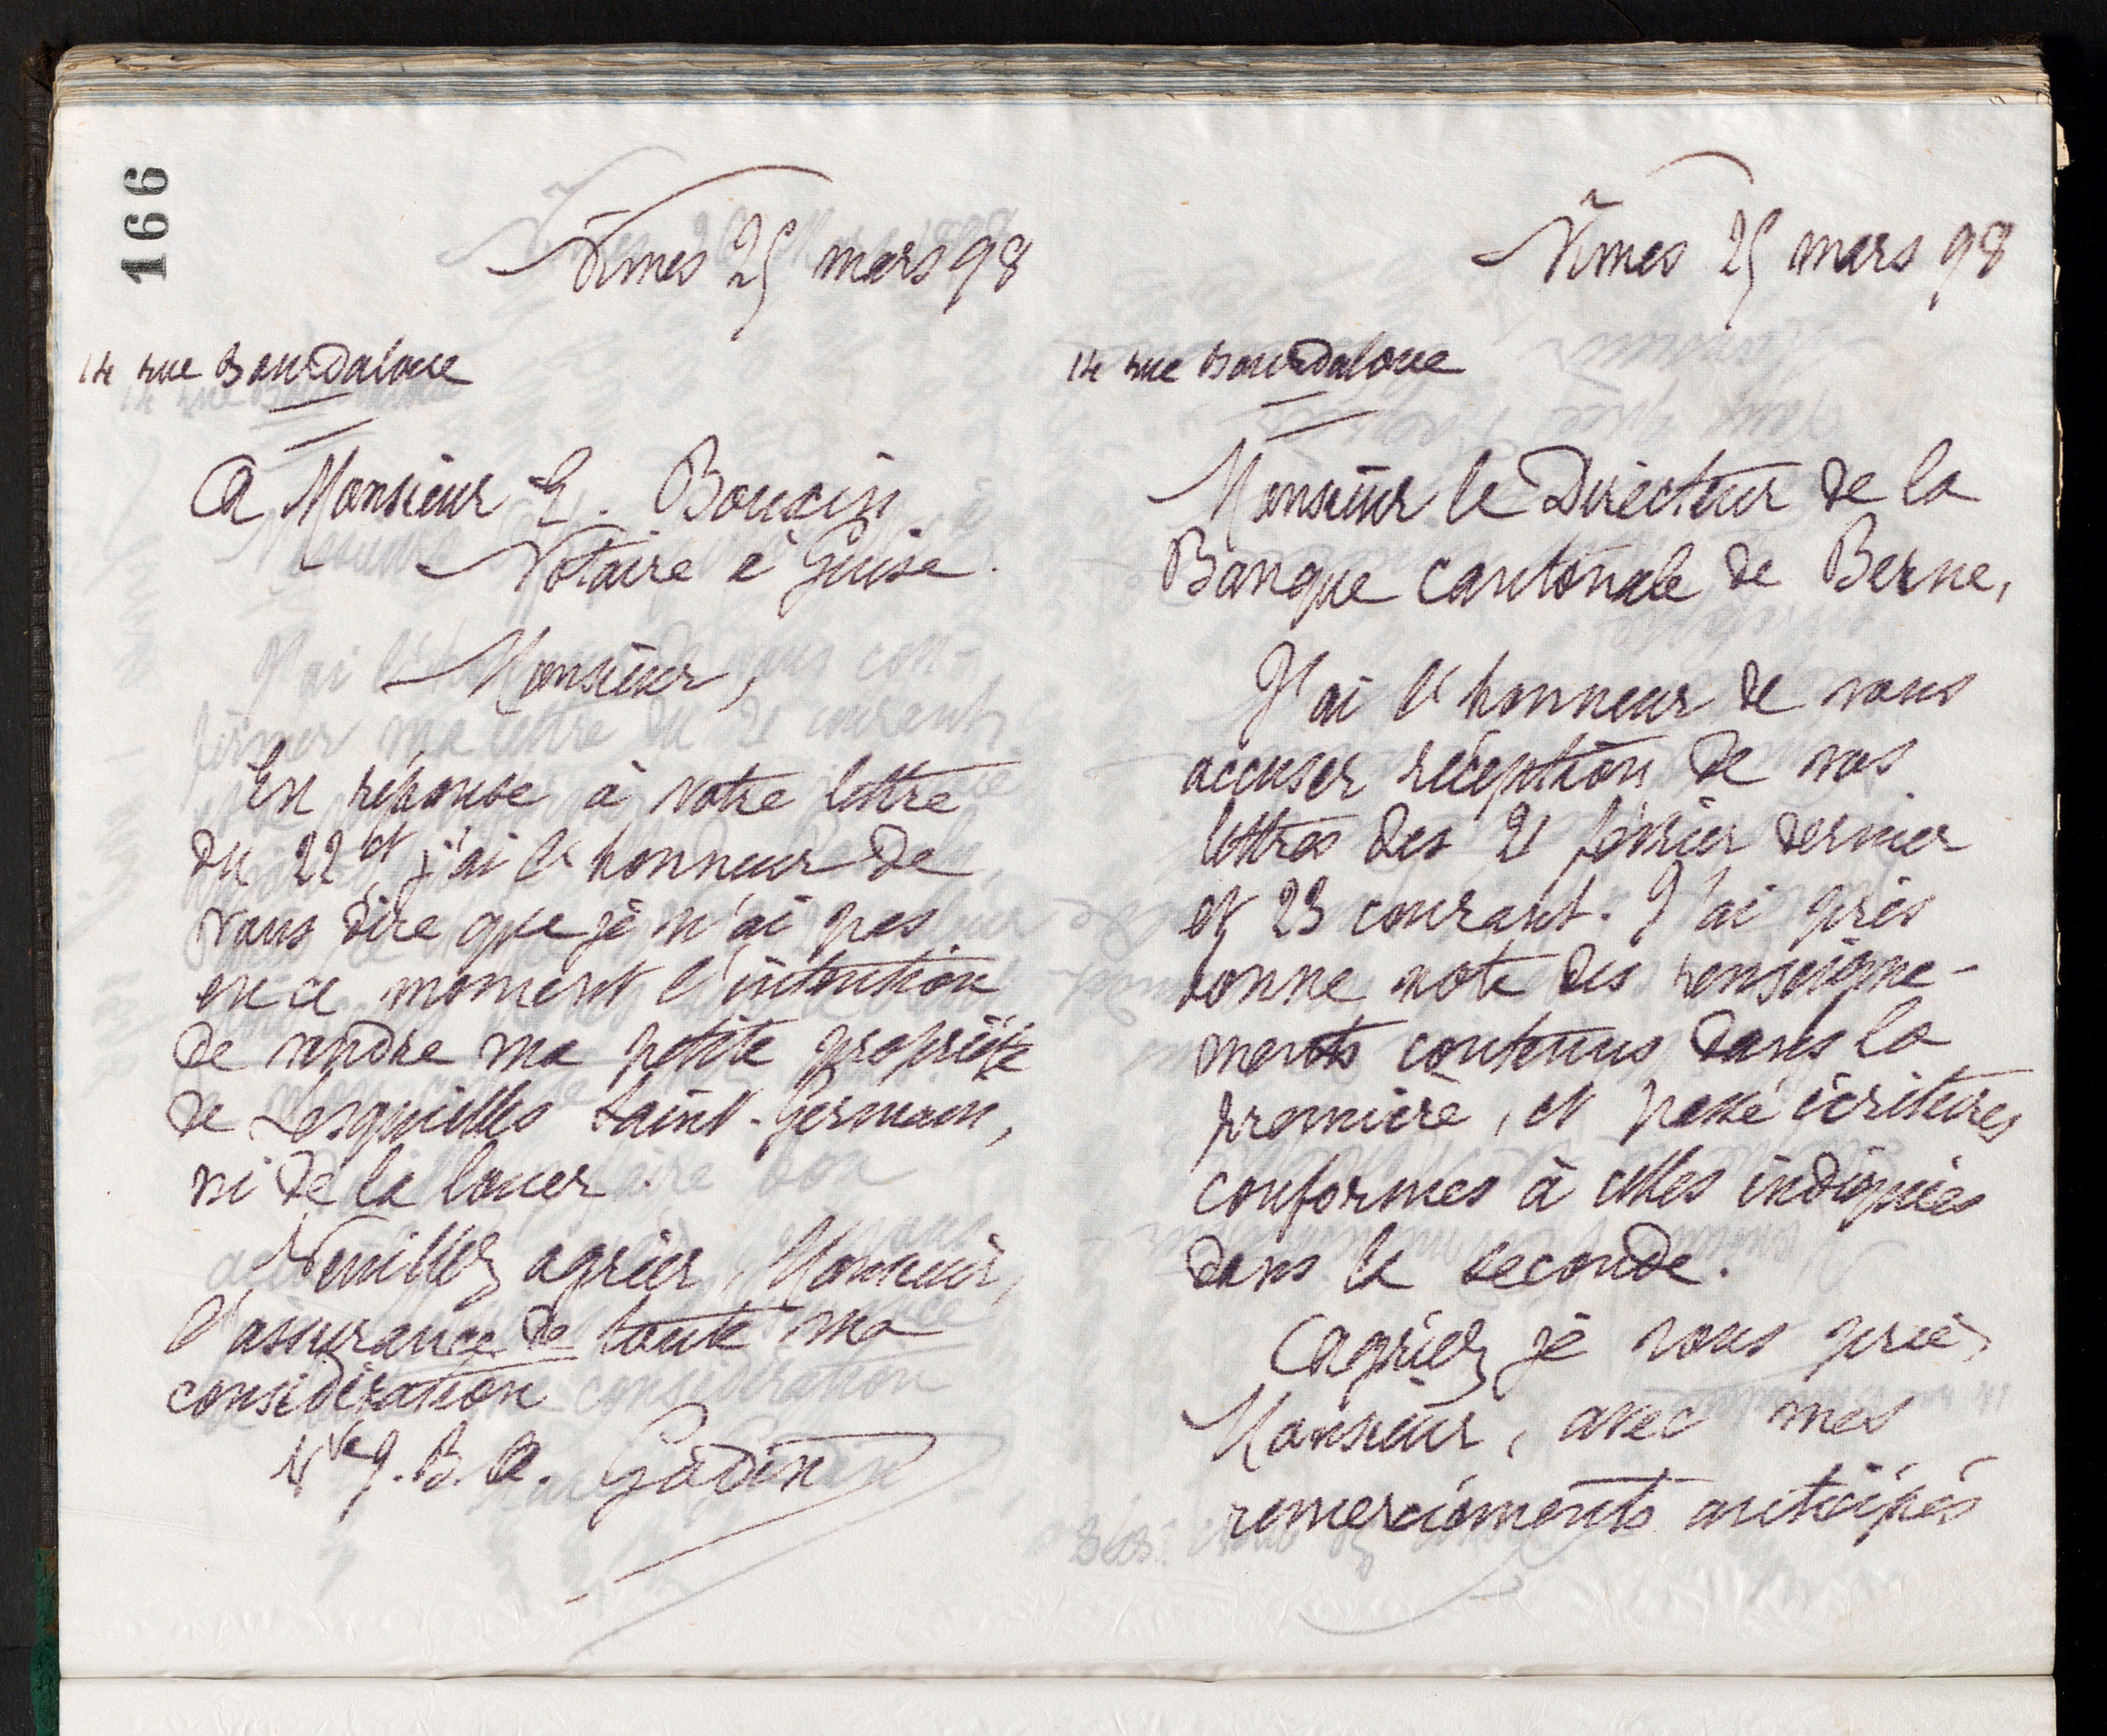 166
Nîmes 25 mars 98
14 rue Bourdaloue
A Monsieur E. Bouxin
Notaire à Guise.
Monsieur,
En réponse à votre lettre
du 22 ct j'ai l'honneur de
vous dire que je n'ai pas
en ce moment l'intention
de vendre ma petite propriété
de Lesquielles Saint-Germain,
ni de la louer.
Veuillez agréer, Monsieur,
l'assurance de toute ma
considération
Vve J. B. A. Godin
Nîmes 25 mars 98
14 rue Bourdaloue
Monsieur le Directeur de la
Banque cantonale de Berne,
J'ai l'honneur de vous
accuser réception de vos
lettres des 21 février dernier
et 23 courant. J'ai pris
bonne note des renseigne-
ments contenus dans la
première, et passé écritures
conformes à celles indiquées
dans la seconde.
Agréez je vous prie,
Monsieur, avec mes
remerciements anticipés